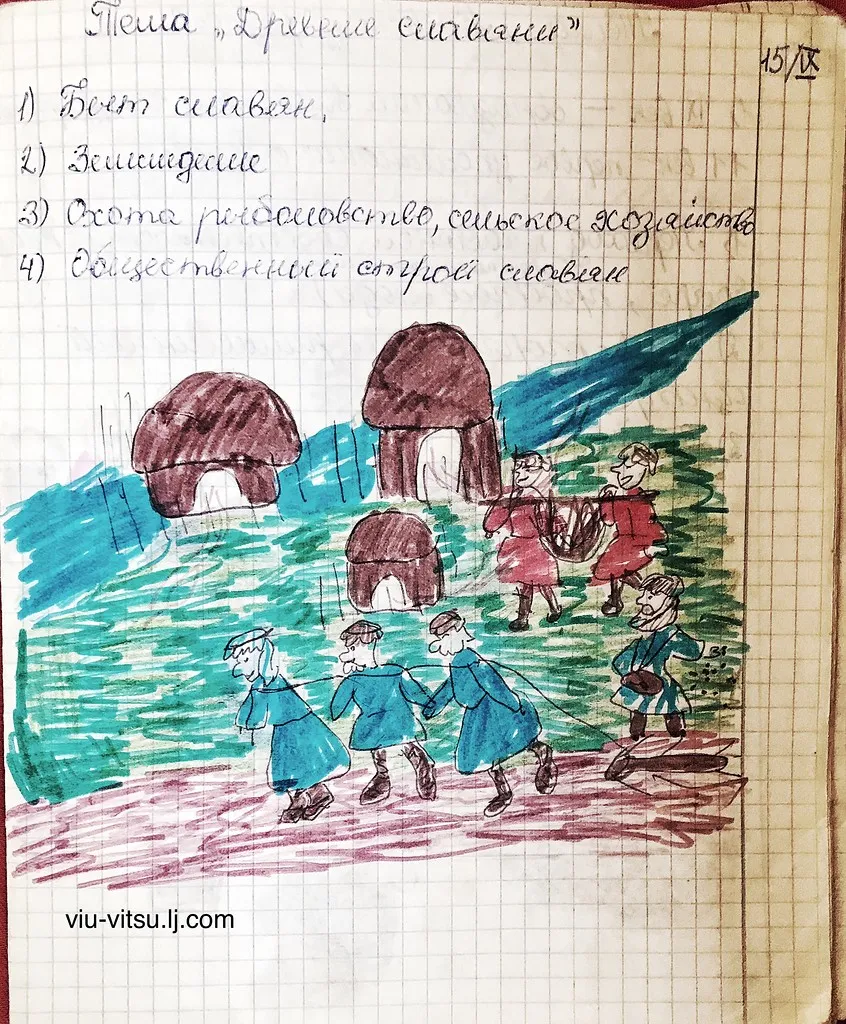 Тема „Древние славяне”
15/IX
1) Быт славян.
2) Земледелие
3) Охота рыболовство, сельское хозяйство
4) Общественный строй славян
viu-vitsu.lj.com